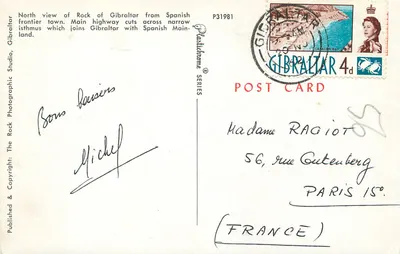 North view of Rock of Gibraltar from Spanish
frontier town. Main highway cuts across narrow
isthmus which joins Gibraltar with Spanish Main-
land.
P31981
Published & Copyright: The Rock Photographic Studio, Gibraltar
Plastichrome ® SERIES
GIBRALTAR
GIBRALTAR 4d
POST CARD
Bons baisers
Michel
Madame RAGIOT
56, rue Gutenberg
PARIS 15º
(FRANCE)